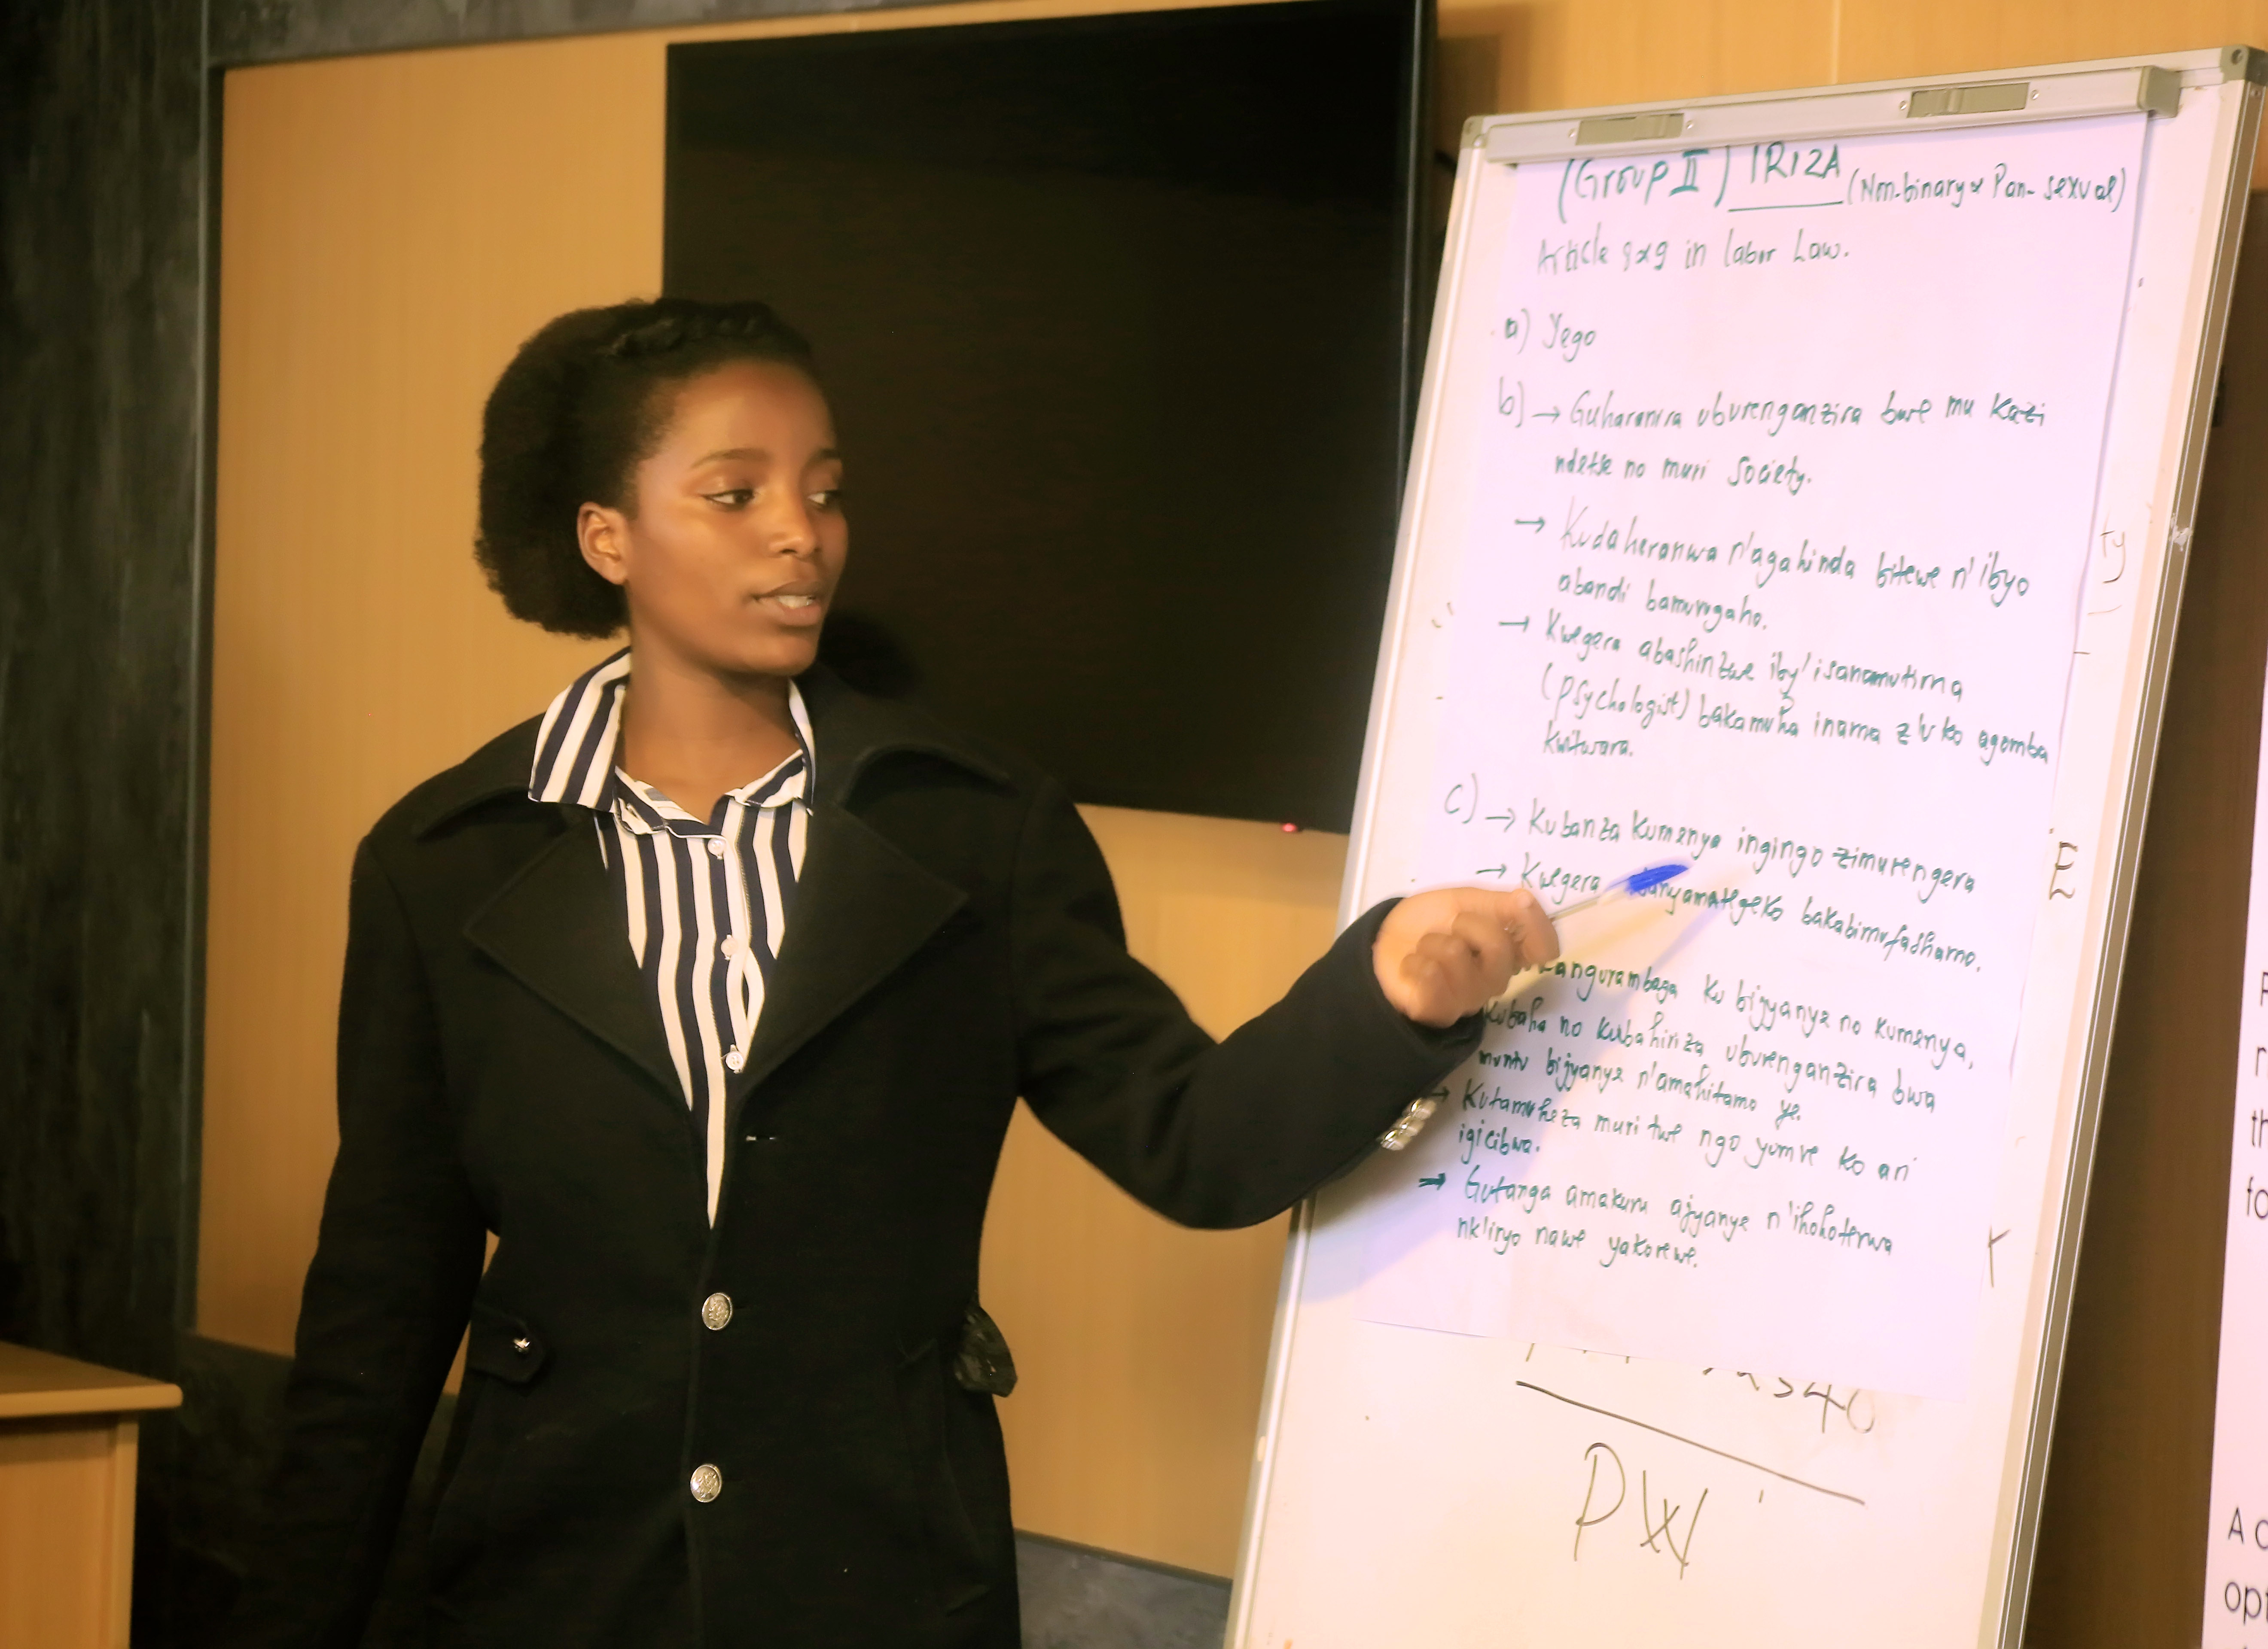 (Group II) IRIZA (Non-binary & Pan-sexual)
Article 8&9 in labor Law.
a) Yego
b) → Guharanira uburenganzira bwe mu kazi
ndetse no muri Society.
→ Kudaheranwa n'agahinda bitewe n'ibyo
abandi bamuvugaho.
→ Kwegera abashinzwe iby'isanamutima
(psychologist) bakamuha inama z'uko agomba
kwitwara.
c) → Kubanza kumenya ingingo zimurengera
→ Kwegera bakabimufashamo.
ku bijyanye no kumenya,
kubaha no kubahiriza uburenganzira bwa
muntu bijyanye n'amahitamo ye.
→ Kutamuheza muri twe ngo yumve ko ari
igicibwa.
→ Gutanga amakuru ajyanye n'ihohoterwa
nk'iryo nawe yakorewe.
ty
E
540
PW
th
fo
A
opt